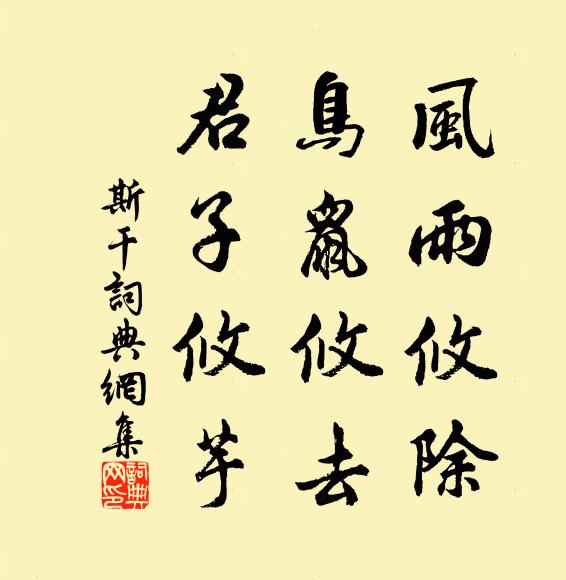 風雨攸除
鳥鼠攸去
君子攸芋
斯干詞典網集
詞典
网印